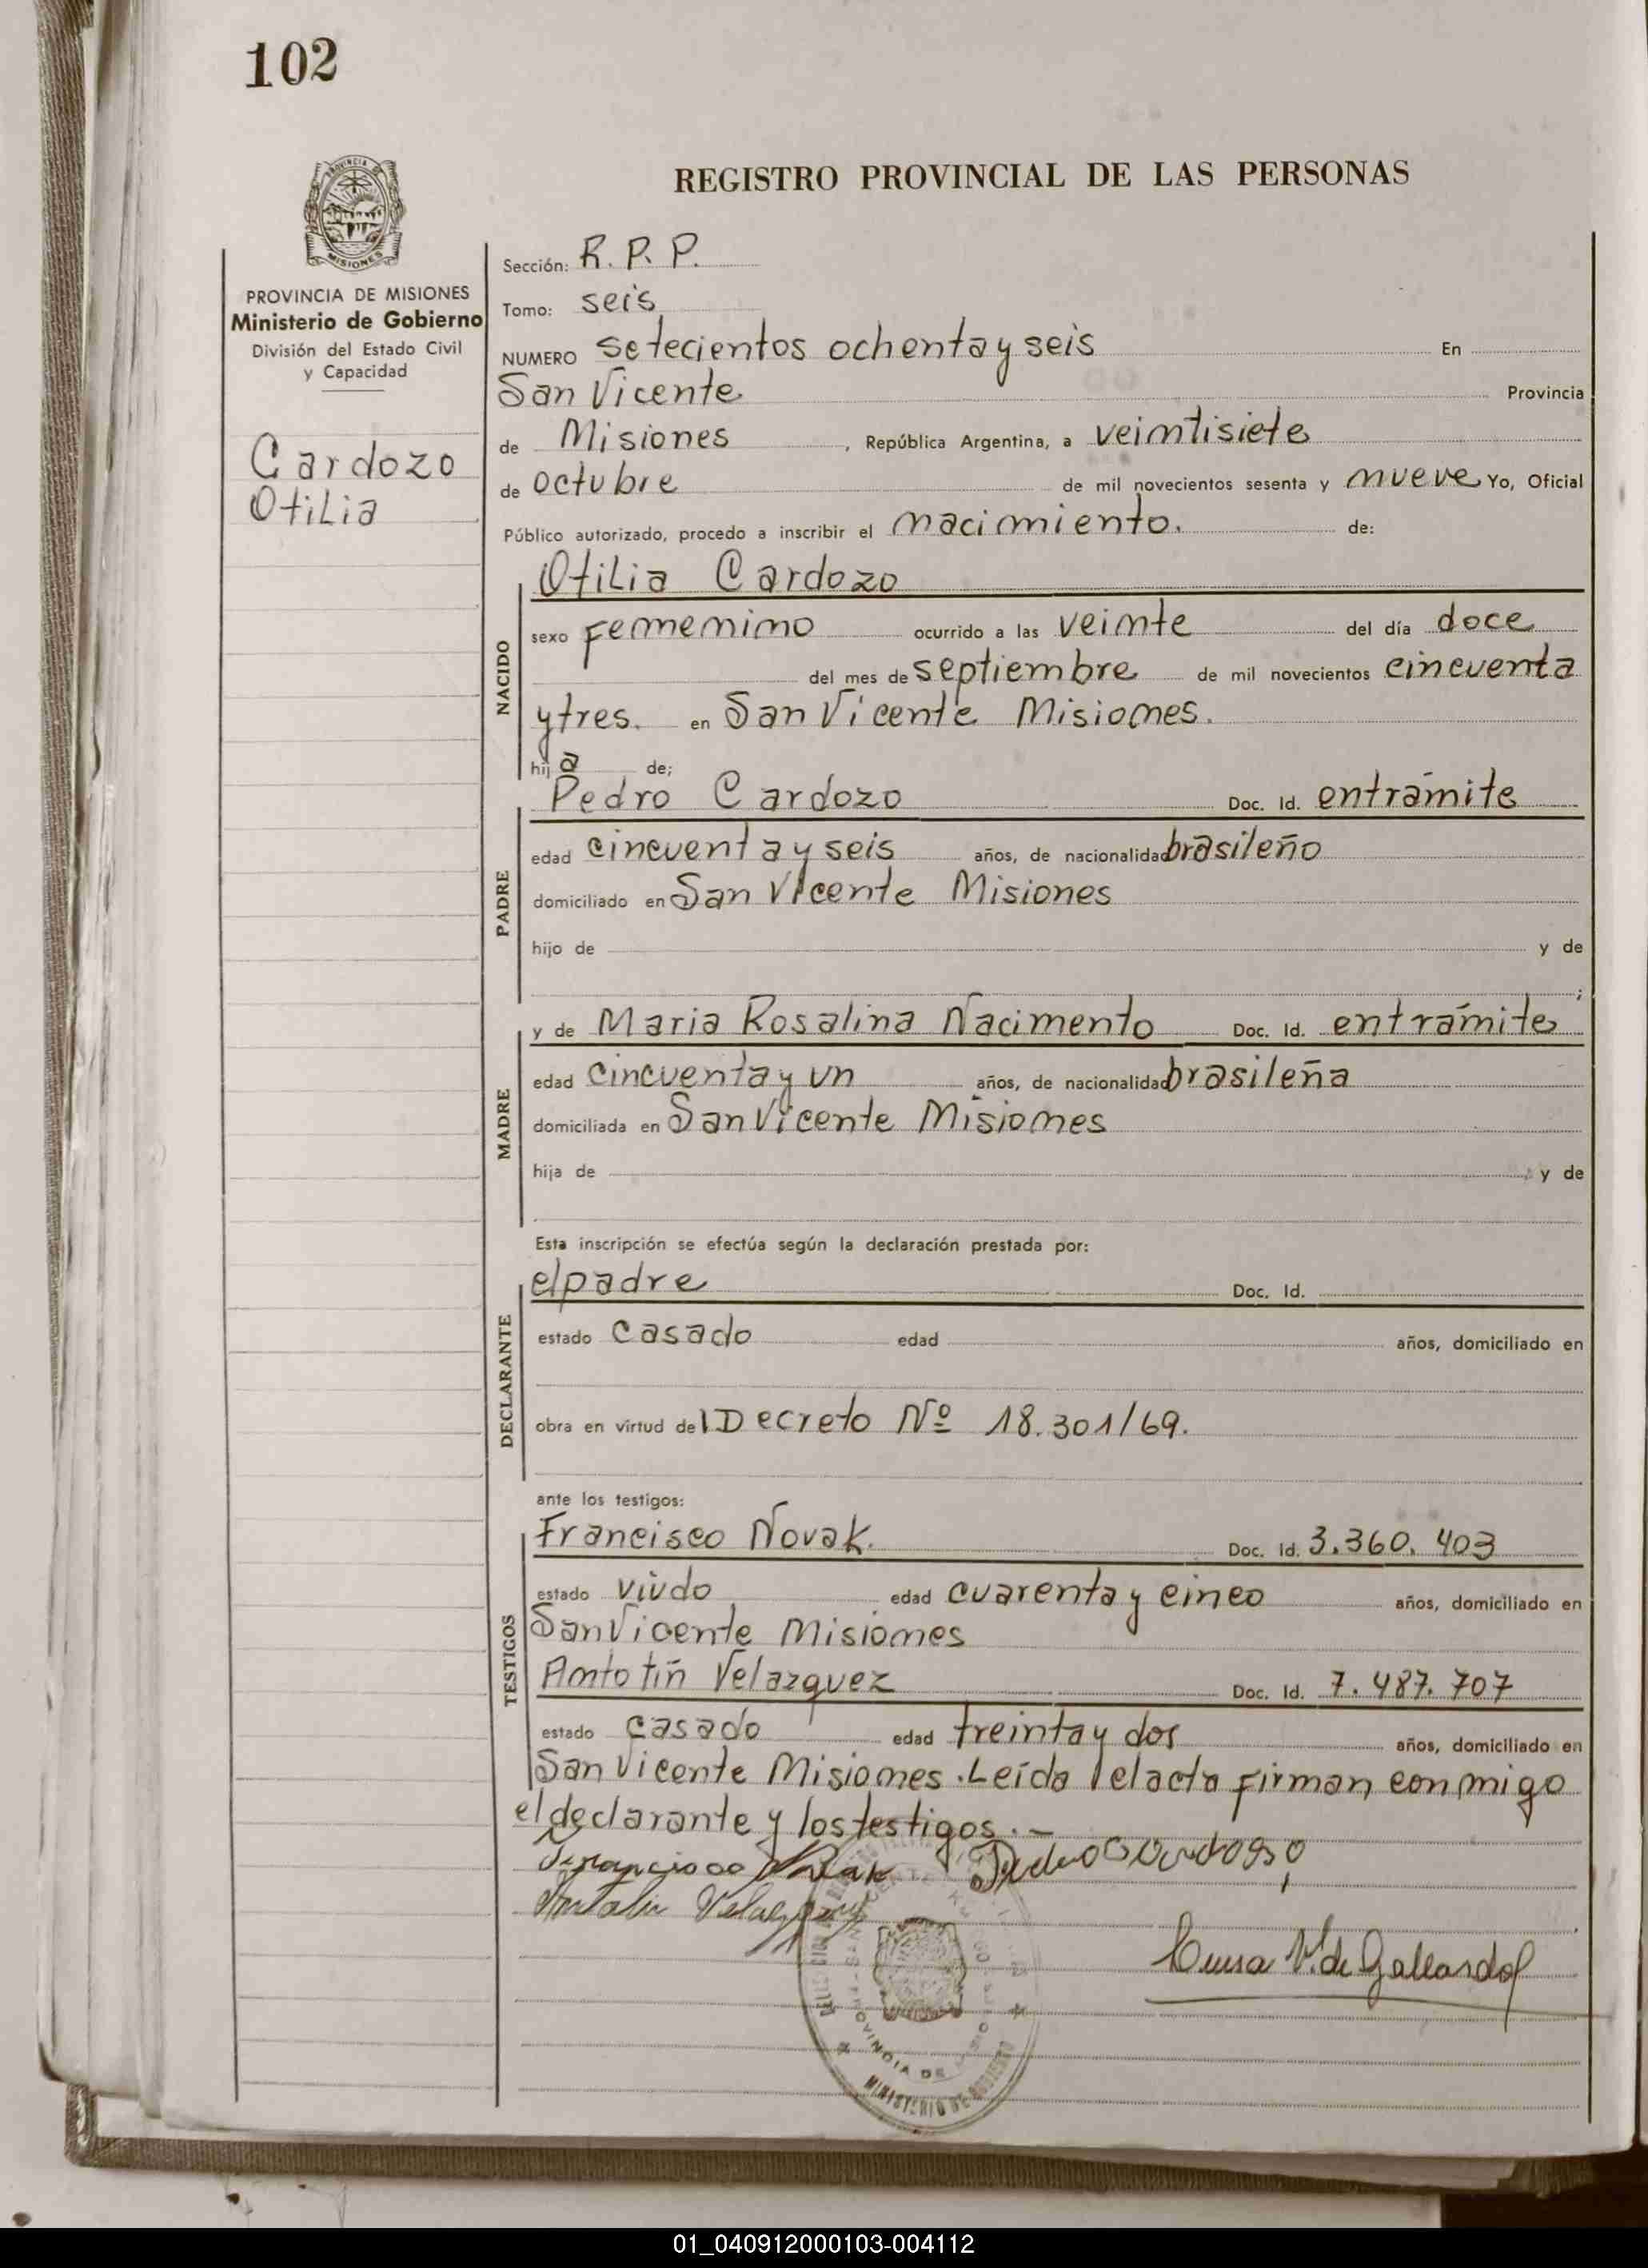 102
REGISTRO PROVINCIAL DE LAS PERSONAS
PROVINCIA DE MISIONES
Ministerio de Gobierno
División del Estado Civil
y Capacidad
Cardozo
Otilia
Sección: R. P. P.
Tomo: seis
NUMERO setecientos ochenta y seis En
San Vicente Provincia
de Misiones, República Argentina, a veimtisiete
de octubre de mil novecientos sesenta y mueve Yo, Oficial
Público autorizado, procedo a inscribir el macimiento. de:
NACIDO
Otilia Cardozo
sexo Femenimo ocurrido a las veimte del día doce
del mes de septiembre de mil novecientos cincuenta
y tres. en San Vicente Misiomes.
hija de;
PADRE
Pedro Cardozo Doc. Id. entrámite
edad cincuenta y seis años, de nacionalidad brasileño
domiciliado en San Vicente Misiones
hijo de y de
;
MADRE
y de Maria Rosalina Nacimento Doc. Id. entrámite
edad cincuenta y un años, de nacionalidad brasileña
domiciliada en San Vicente Misiomes
hija de y de
Esta inscripción se efectúa según la declaración prestada por:
DECLARANTE
el padre Doc. Id.
estado casado edad años, domiciliado en
obra en virtud del Decreto Nº 18.301/69.
ante los testigos:
TESTIGOS
Francisco Novak. Doc. Id. 3.360.403
estado viudo edad cuarenta y cinco años, domiciliado en
San Vicente Misiomes
Amtotín Velazquez Doc. Id. 7.487.707
estado casado edad treinta y dos años, domiciliado en
San Vicente Misiomes. Leída el acta firman conmigo
el declarante y los testigos.-
Francisco Novak Pedro Cardozo
Velazquez
Luisa V. de Gallardo
PROVINCIA DE
MINISTERIO DE GOBIERNO
01_040912000103-004112